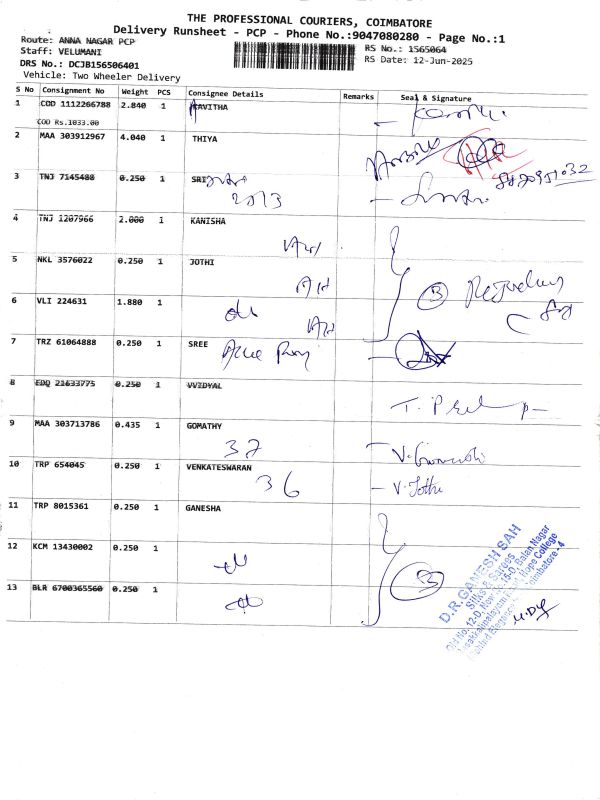 THE PROFESSIONAL COURIERS, COIMBATORE
Delivery Runsheet - PCP - Phone No.:9047080280 - Page No.:1
Route: ANNA NAGAR PCP
RS No.: 1565064
Staff: VELUMANI
RS Date: 12-Jun-2025
DRS No.: DCJB156506401
Vehicle: Two Wheeler Delivery
S No Consignment No Weight PCS Consignee Details Remarks Seal & Signature
1 COD 1112266788 2.840 1 KAVITHA
COD Rs.1033.00
2 MAA 303912967 4.040 1 THIYA
3 TNJ 7145480 0.250 1 SRI
2013
4 TNJ 1207966 2.000 1 KANISHA
5 NKL 3576022 0.250 1 JOTHI
3
6 VLI 224631 1.880 1
7 TRZ 61064888 0.250 1 SREE
8 EDQ 21633775 0.250 1 VVIDYAL
9 MAA 303713786 0.435 1 GOMATHY
37
10 TRP 654045 0.250 1 VENKATESWARAN
36 V. Jothi
11 TRP 8015361 0.250 1 GANESHA
12 KCM 13430002 0.250 1
3
13 BLR 6700365560 0.250 1
D.R. GANESH SAH
Silks & Sarees